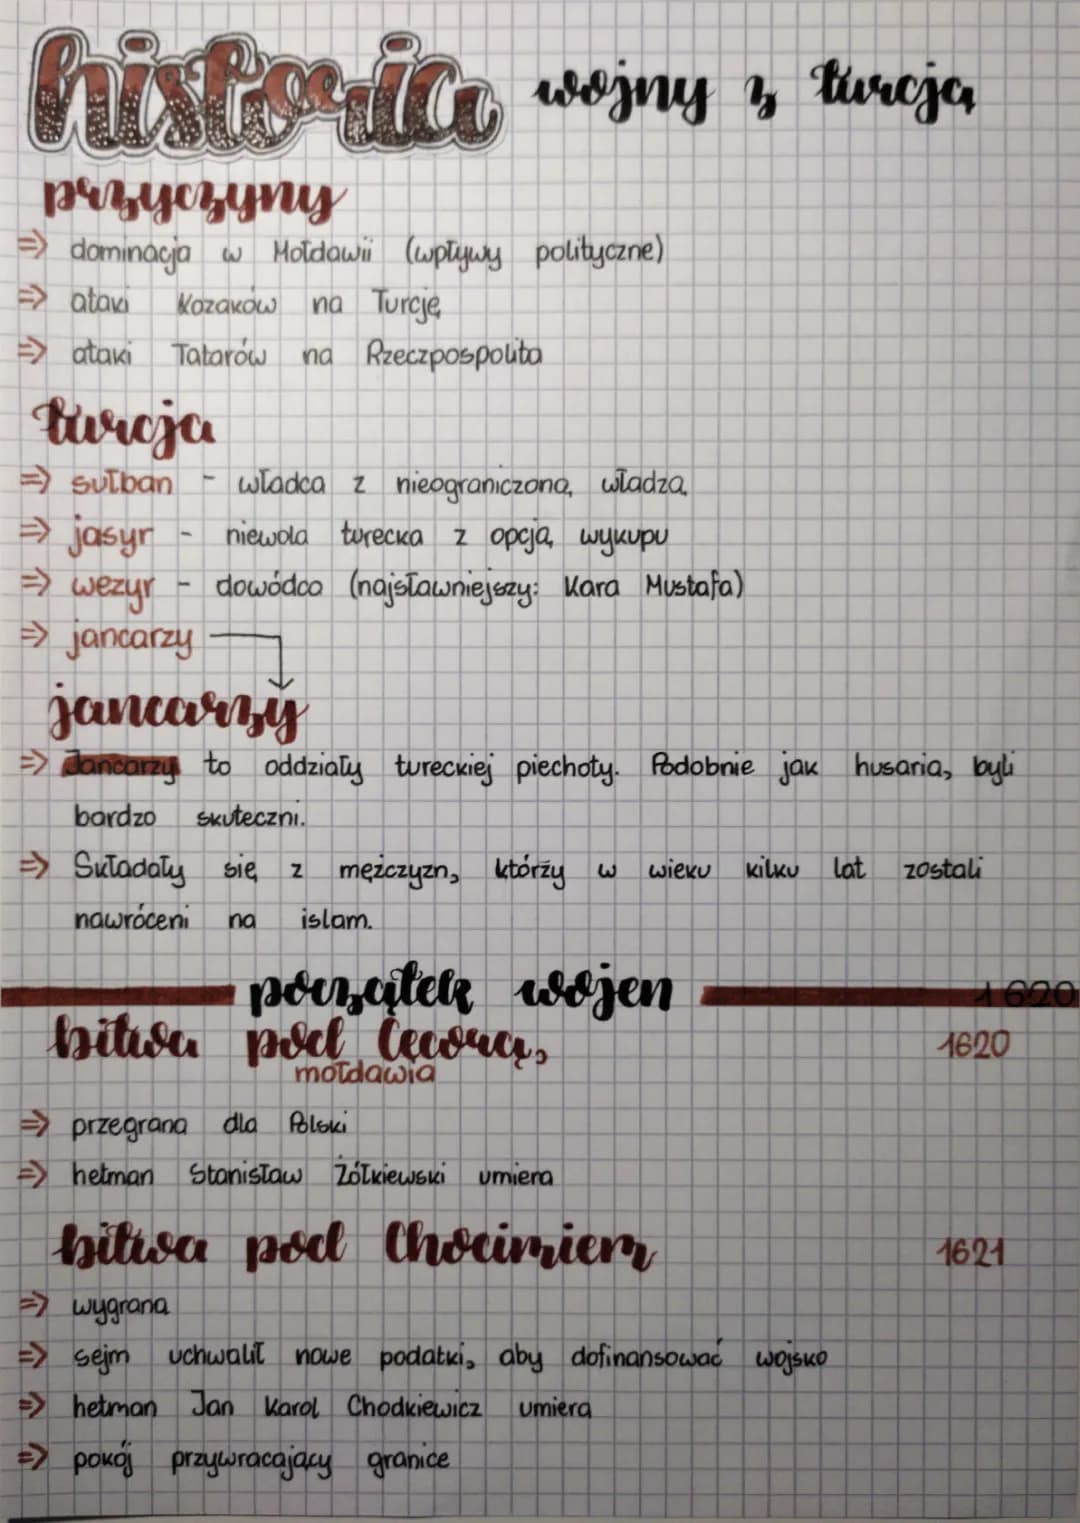 historia wojny z turcją
przyczyny
⇒ dominacja w Mołdawii (wpływy polityczne)
⇒ ataki Kozaków na Turcję
⇒ ataki Tatarów na Rzeczpospolita
turcja
⇒ sułtan - władca z nieograniczoną władzą
⇒ jasyr - niewola turecka z opcją wykupu
⇒ wezyr - dowódca (najsławniejszy: Kara Mustafa)
⇒ jancarzy
jancarzy
⇒ Jancarzy to oddziały tureckiej piechoty. Podobnie jak husaria, byli
bardzo skuteczni.
⇒ Składały się z mężczyzn, którzy w wieku kilku lat zostali
nawróceni na islam.
początek wojen 1620
bitwa pod Cęcorą, 1620
mołdawia
⇒ przegrana dla Polski
⇒ hetman Stanisław Żółkiewski umiera
bitwa pod Chocimiem 1621
⇒ wygrana
⇒ sejm uchwalił nowe podatki, aby dofinansować wojsko
⇒ hetman Jan Karol Chodkiewicz umiera
⇒ pokój przywracający granice